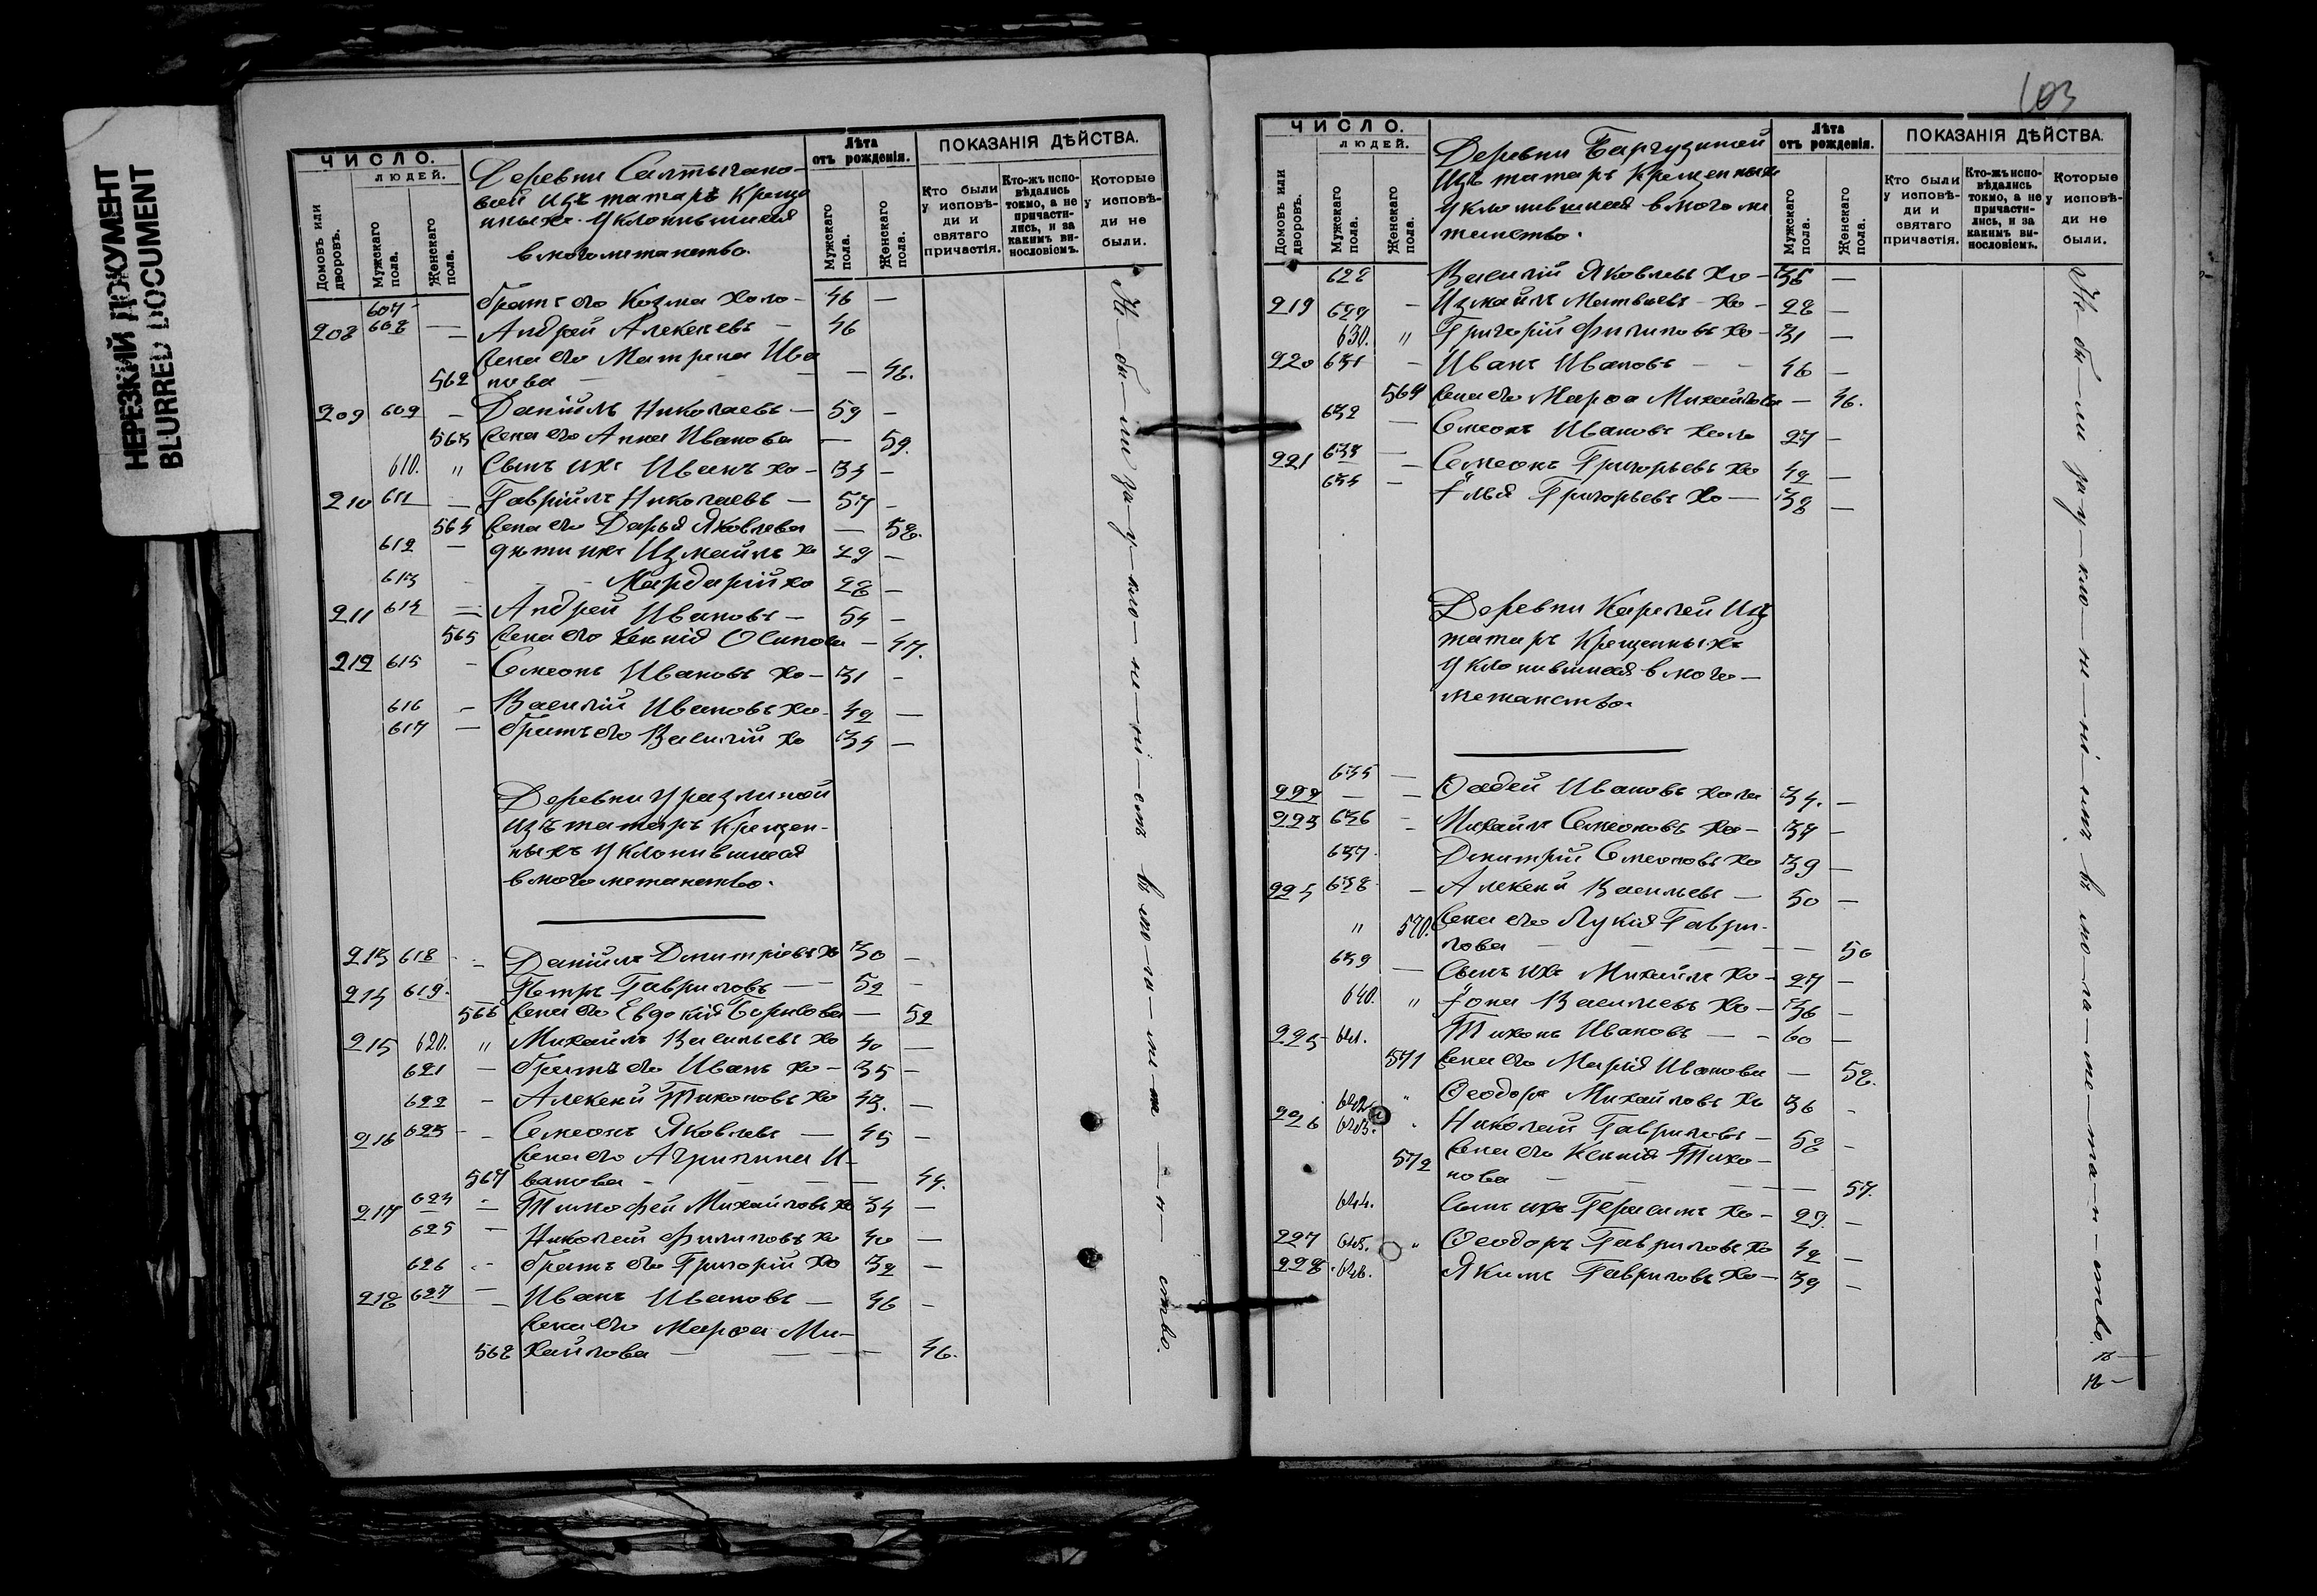 НЕРЕЗКИЙ ДОКУМЕНТ
BLURRED DOCUMENT
ЧИСЛО.
ЛЮДЕЙ.
Домовъ или дворовъ.
Мужскаго пола.
Женскаго пола.
Деревни Салтыгано-
вой изъ татаръ Креще
нныхъ уклонившихся
въ могометанство.
Лѣта
отъ рожденія.
Мужскаго пола.
Женскаго пола.
ПОКАЗАНІЯ ДѢЙСТВА.
Кто были у исповѣ-ди и святаго причастія.
Кто-жъ испо-вѣдались токмо, а не причасти-лись, и за какимъ ви-нословіемъ.
Которые у исповѣ-ди не были.
607 братъ его Козма холо- 46 —
208 608 — Андрей Алексѣевъ — 46
Жена его Матрена Ива
562 нова — — 46.
209 609 — Даніилъ Николаевъ — 59 —
563 Жена его Анна Иванова — 59.
610. " Сынъ ихъ Иванъ хо- 34 —
210 611 — Гавріилъ Николаевъ — 57 —
564 Жена его Дарья Яковлева — 58.
612 — дѣти ихъ Измаилъ хо 29 —
613 - Мардарій хо 28 —
211 614 — Андрей Ивановъ — 54 —
565 Жена его Ксенія Осипова — 47.
212 615 - Симеонъ Ивановъ хо- 31 —
616 - Василій Ивановъ хо- 42 —
617 — братъ его Василій хо 34 —
Деревни Уразлиной
изъ татаръ Крещен-
ныхъ уклонившихся
въ могометанство.
213 618 - Даніилъ Димитріевъ хо 30 —
214 619. Петръ Гавриловъ — 52 -
566 Жена его Евдокія Борисова — 52
215 620. " Михаилъ Васильевъ хо 40 —
621 — братъ его Иванъ хо- 35 —
622 - Алексѣй Тихоновъ хо 43. —
216 623 - Семеонъ Яковлевъ — 45 —
Жена его Агрипина И-
567 ванова - — — 44.
217 624 — Тимофей Михайловъ хо 34 —
625 — Николай Филиповъ хо 40 —
626 - братъ его Григорій хо 32 —
218 627 — Иванъ Ивановъ — 46 -
Жена его Марѳа Ми-
568 хайлова — — 46.
Не-бы-ли за у-кло-не-ні-емъ въ мо-го-ме-та-н-ство.
103
ЧИСЛО.
ЛЮДЕЙ.
Домовъ или дворовъ.
Мужскаго пола.
Женскаго пола.
Деревни Баргузиной
изъ татаръ Крещенныхъ
уклонившихся въ могоме
танство.
Лѣта
отъ рожденія.
Мужскаго пола.
Женскаго пола.
ПОКАЗАНІЯ ДѢЙСТВА.
Кто были у исповѣ-ди и святаго причастія.
Кто-жъ испо-вѣдались токмо, а не причасти-лись, и за какимъ ви-нословіемъ.
Которые у исповѣ-ди не были.
628 Василій Яковлевъ хо- 36 —
219 629 - Измаилъ Матвѣевъ - хо- 28 —
630. " Григорій Филиповъ хо- 31 —
220 631 - Иванъ Ивановъ - - 46 —
569 Жена его Марѳа Михайлова — 46.
632 — Симеонъ Ивановъ холо 27 —
221 633 — Семеонъ Григорьевъ хо 42 —
634 — Илья Григорьевъ хо — 38 —
Деревни Карелей изъ
татаръ Крещенныхъ
уклонившихся въ мого-
метанство.
635 —
222 — Ѳадей Ивановъ холо 34. —
223 636 - Михаилъ Семеоновъ хо- 37 —
637. Димитрій Симеоновъ хо 39 —
224 638 - Алексѣй Васильевъ — 50 —
" 570. Жена его Лукія Гаври-
лова — — 50
639 — Сынъ ихъ Михаилъ хо- 27 —
640. " Іона Васильевъ хо- 36 —
225 641. Тихонъ Ивановъ — 60 —
571 Жена его Марія Иванова — 58.
642. " Ѳеодоръ Михайловъ хо 36 -
226 643. Николай Гавриловъ — 58 —
572 Жена его Ксенія Тихо-
нова — — 57.
644. Сынъ ихъ Герасимъ хо- 29. —
227 645. " Ѳеодоръ Гавриловъ хо 42 —
228. 646. Якимъ Гавриловъ хо- 39 —
Не-бы-ли за у-кло-не-ні-емъ въ мо-го-ме-та-н-ство.